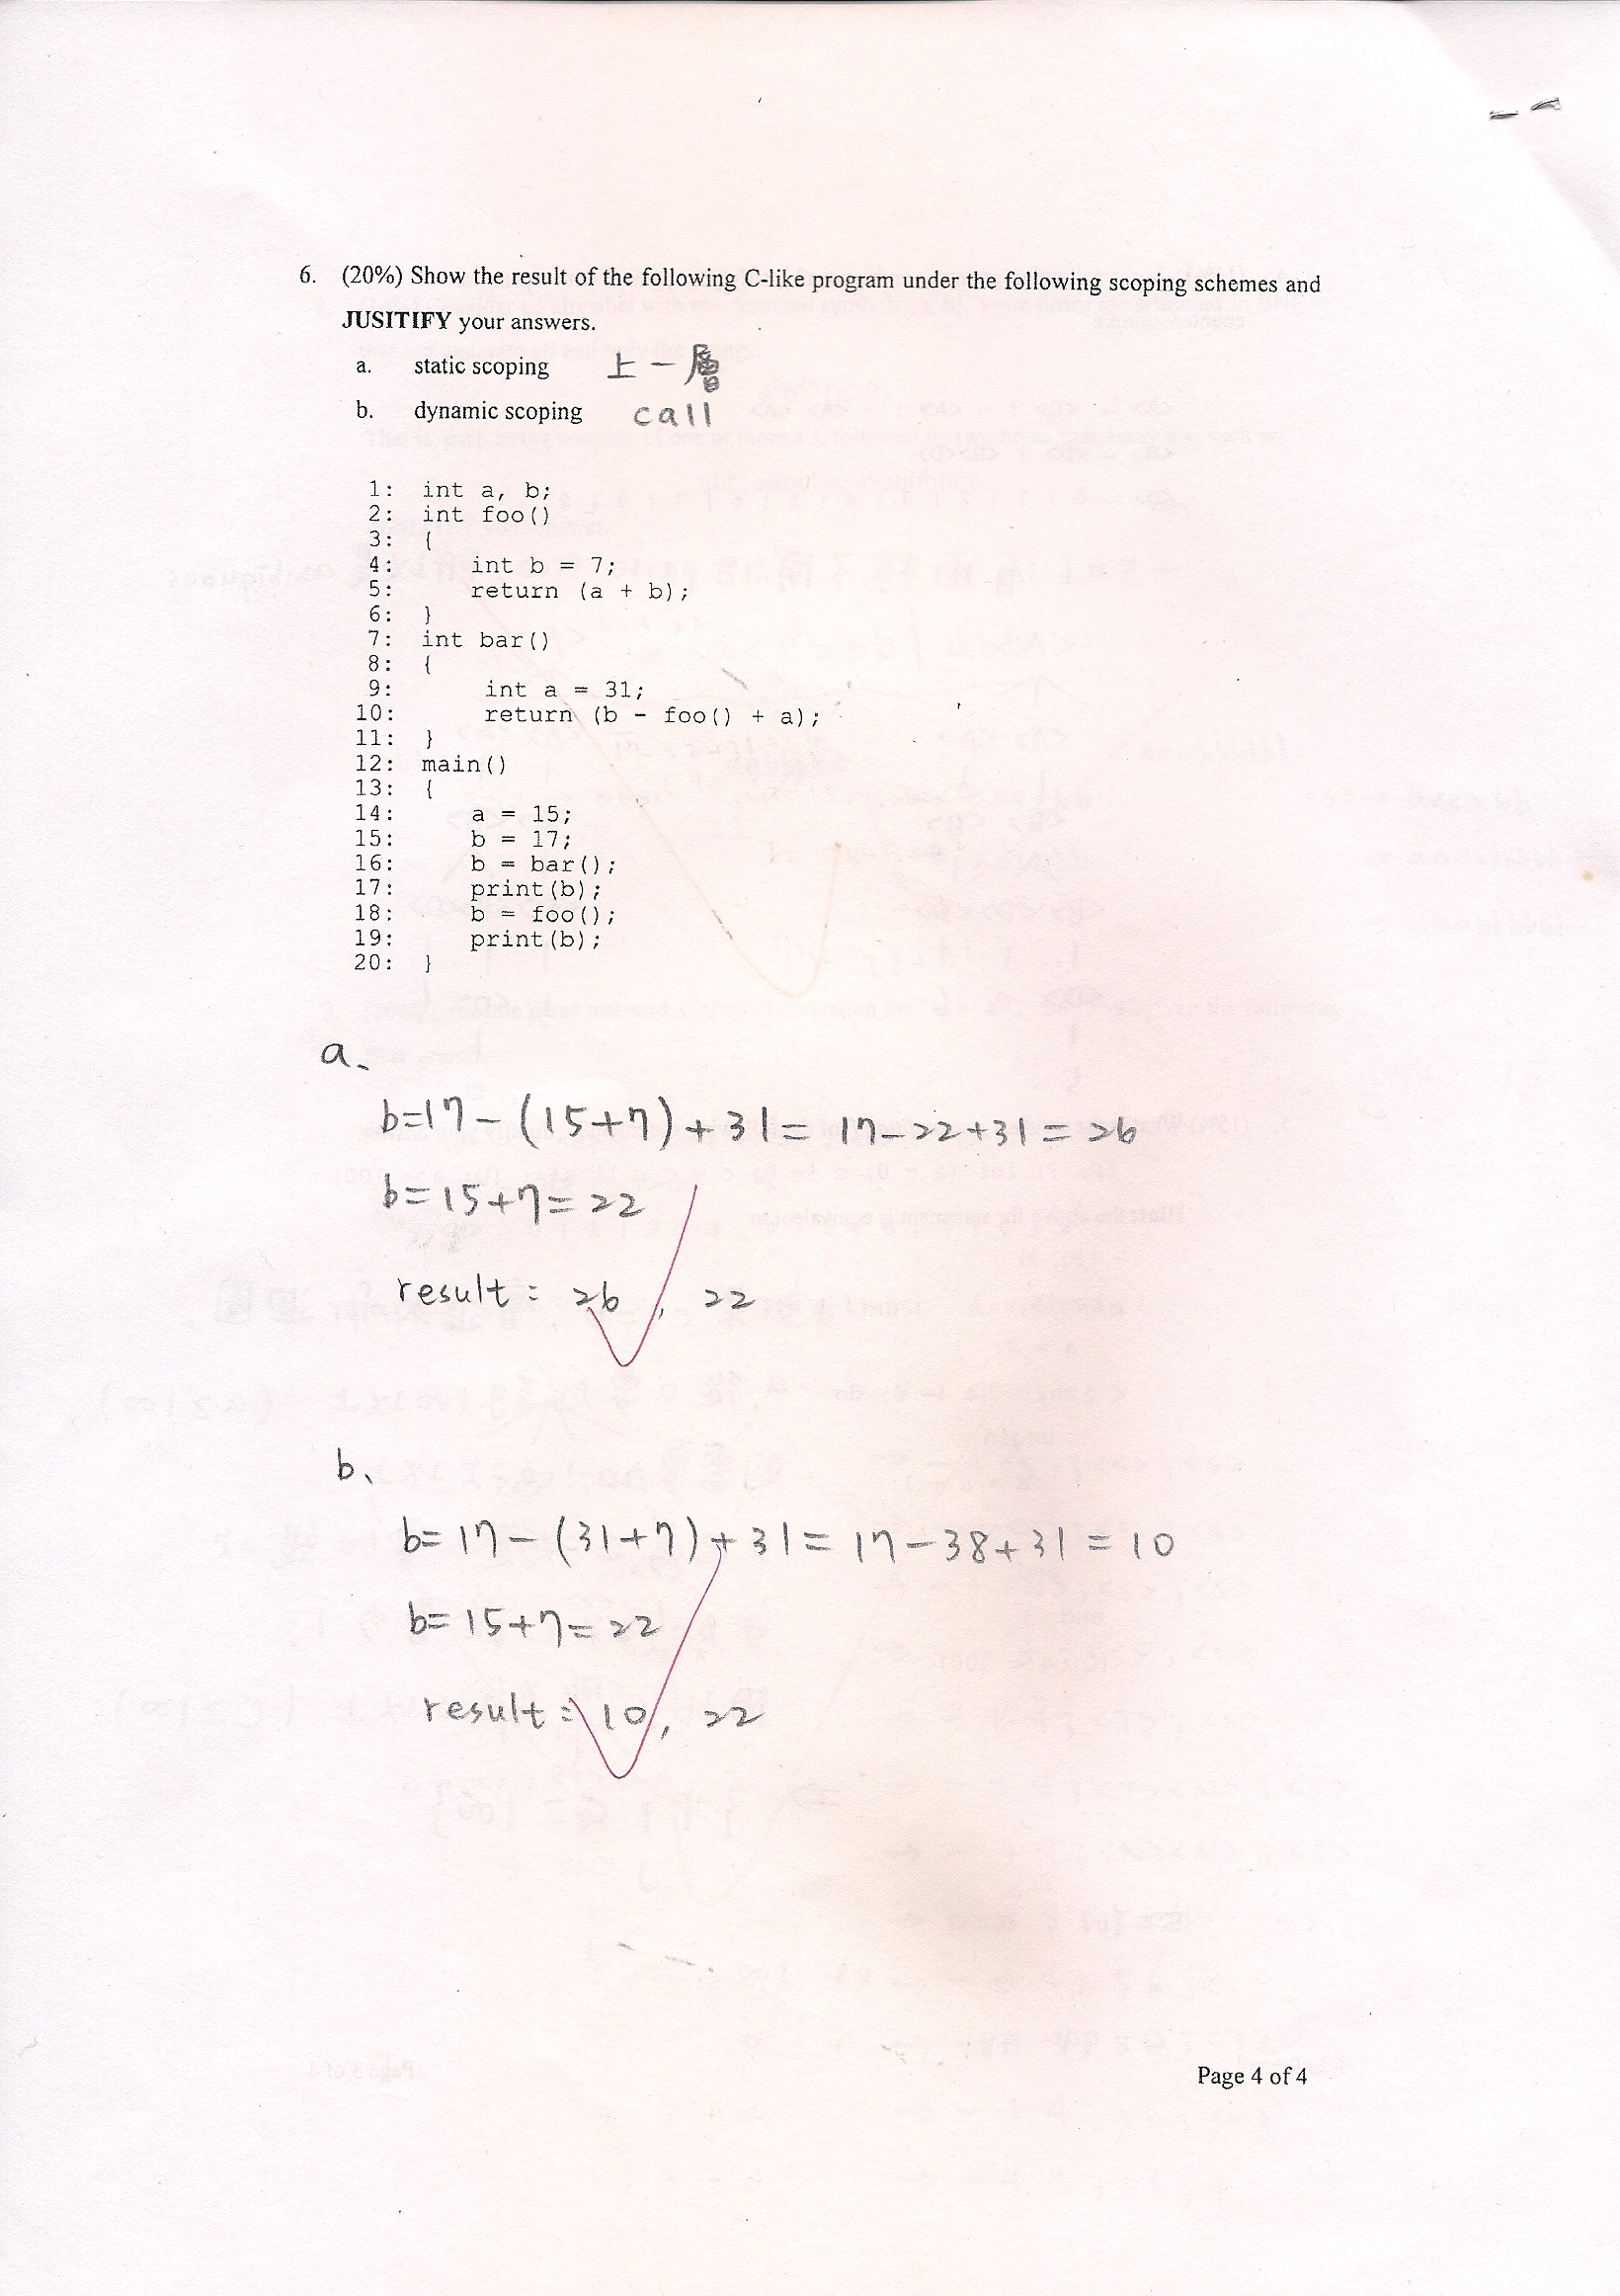 6. (20%) Show the result of the following C-like program under the following scoping schemes and
JUSITIFY your answers.
a. static scoping 上一層
b. dynamic scoping call
1: int a, b;
2: int foo()
3: {
4: int b = 7;
5: return (a + b);
6: }
7: int bar()
8: {
9: int a = 31;
10: return (b - foo() + a);
11: }
12: main()
13: {
14: a = 15;
15: b = 17;
16: b = bar();
17: print(b);
18: b = foo();
19: print(b);
20: }
a、
b=17-(15+7)+31= 17-22+31=26
b=15+7=22
result: 26, 22
b、
b=17-(31+7)+31=17-38+31=10
b=15+7=22
result: 10, 22
Page 4 of 4